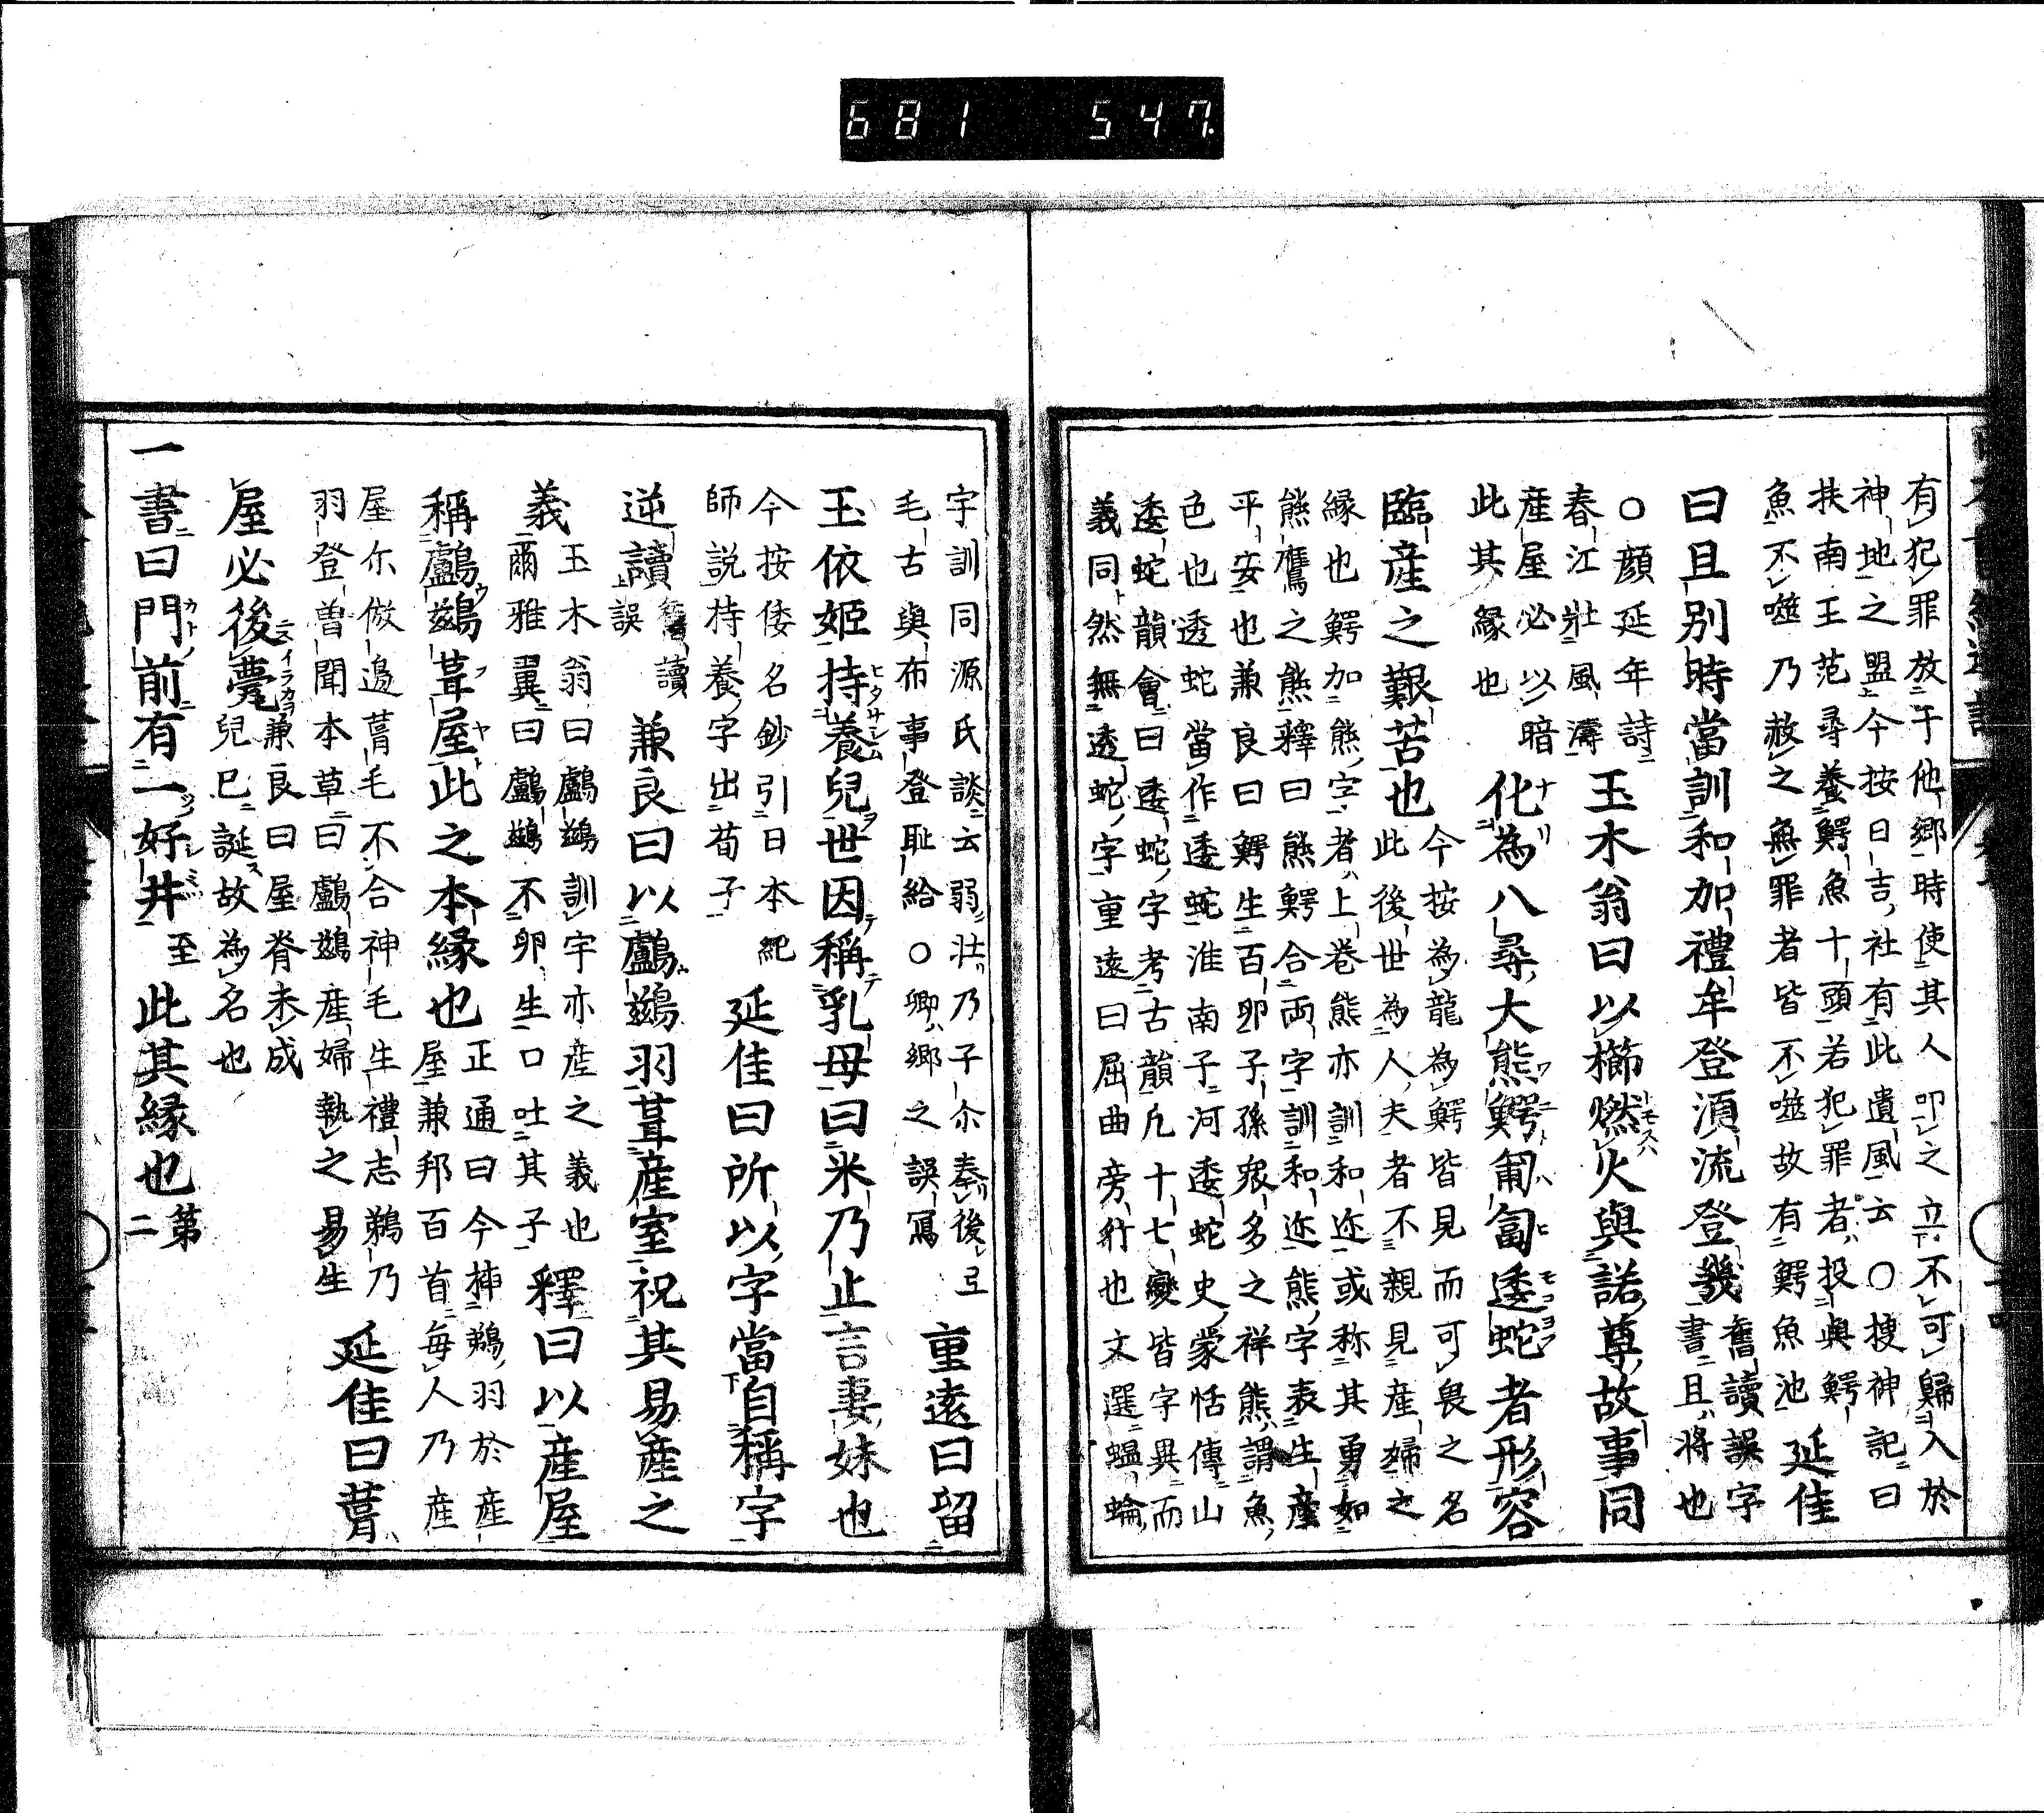 681 547.
有犯罪放于他郷時使其人叩之立不可歸入於
神地之盟今按日吉社有此遺風云〇捜神記曰
扶南王范尋養鰐魚十頭若犯罪者投與鰐
魚不噬乃赦之無罪者皆不噬故有鰐魚池 延佳
曰且別時當訓和加禮牟登湏流登幾
舊讀誤字
書且將也
〇顔延年詩
春江壯風濤
玉木翁曰以櫛燃火與諾尊故事同
産屋必以暗
此其縁也
化為八尋大熊鰐匍匐逶蛇者形容
臨産之艱苦也
今按為龍為鰐皆見而可畏之名
此後世為人夫者不親見産婦之
縁也鰐加熊字者上巻熊亦訓和迩或称其勇如
熊鷹之熊釋曰熊鰐合両字訓和迩熊字表生産
平安也兼良曰鰐生百卵子孫衆多之祥熊謂魚
色也透蛇當作逶蛇淮南子河逶蛇史蒙恬傳山
逶蛇韻會曰逶蛇字考古韻凡十七變皆字異而
義同然無透蛇字重遠曰屈曲旁行也文選蝹蜦
字訓同源氏談云弱壮乃子尓奉後弖
毛古與布事登耻給〇卿郷之誤寫
重遠曰留
玉依姫持養兒世因稱乳母曰米乃止言妻妹也
今按倭名鈔引日本紀
師説持養字出荀子
延佳曰所以字當自稱字
逆讀
讀
誤
兼良曰以鸕鷀羽葺産室祝其易産之
義
玉木翁曰鸕鷀訓宇亦産之義也
爾雅翼曰鸕鷀不卵生口吐其子
釋曰以産屋
稱鸕鷀葺屋此之本縁也
正通曰今挿鵜羽於産
屋兼邦百首毎人乃産
屋尓倣邉葺毛不合神毛生禮志鵜乃
羽登曽聞本草曰鸕鷀産婦執之易生
延佳曰葺
屋必後甍
兼良曰屋脊未成
兒巳誕故為名也
一書曰門前有一好井至此其縁也
第
二